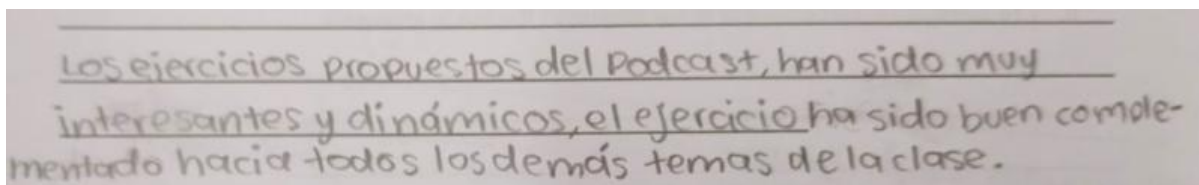 Los ejercicios propuestos del Podcast, han sido muy
interesantes y dinámicos, el ejercicio ha sido buen comple-
mentado hacia todos los demás temas de la clase.